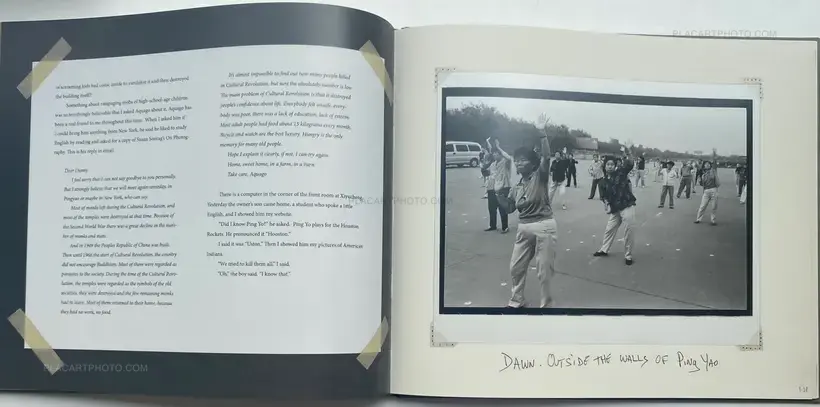 PLACARTPHOTO.COM
up something about it. Aquage has
been a real friend to me throughout this time. When I asked him if
I could bring him anything from New York, he said he liked to study
English by reading and asked for a copy of Susan Sontag's On Photog-
raphy. This is his reply to email:
Dear Danny
I feel sorry that I can not say goodbye to you personally.
But I strongly believe that we will meet again someday, in
Pingyao or maybe in New York, who can say.
Most of monks left during the Cultural Revolution, and
most of the temples were destroyed at that time. Because of
the Second World War there was a great decline on the num-
ber of monks and nuns.
And in 1949 the Peoples Republic of China was built.
Then until 1966 the start of Cultural Revolution, the country
did not encourage Buddhism. Most of them were regarded as
parasites in the society. During the time of the Cultural Revo-
lution, the temples were regarded as the symbols of the old
societies, they were destroyed and the few remaining monks
had to leave. Most of them returned to their home, because
they had no work, no food.
It's almost impossible to find out how many people killed
in Cultural Revolution, but sure the absolutely number is low.
The main problem of Cultural Revolution is that it destroyed
people's confidence about life. Everybody felt unsafe, every-
body was poor, there was a lack of education, lack of estate.
Most adult people had food about 15 kilograms every month.
Bicycle and watch are the best luxury. Hungry is the only
memory for many old people.
Hope I explain it clearly, if not, I can try again.
Home, sweet home, in a farm, in a town.
Take care, Aquage.
There is a computer in the corner of the front room at
Yesterday the owner's son came home, a student who spoke a little
English, and I showed him my website.
"Did I know Ping Yo?" he asked. Ping Yo plays for the Houston
Rockets. He pronounced it "Houston."
I said it was "Uston." Then I showed him my pictures of American
Indians.
"We tried to kill them all," I said.
"Oh," the boy said. "I know that."
PLACARTPHOTO.COM
PLACARTPHOTO.COM
DAWN. OUTSIDE THE WALLS OF PING YAO
PLACARTPHOTO.COM